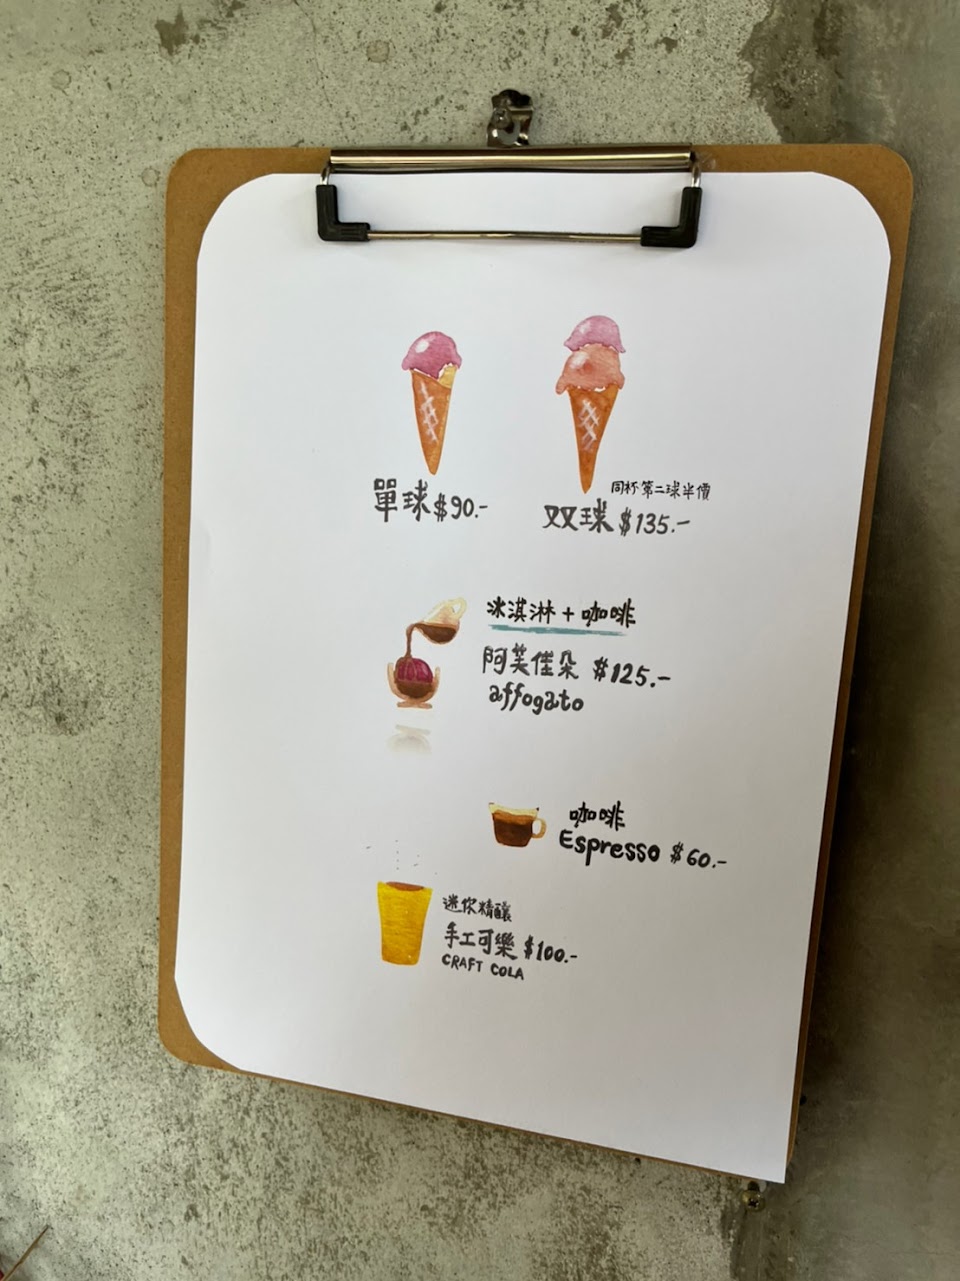 單球 $90.-
同杯第二球半價
双球 $135.-
冰淇淋 + 咖啡
阿芙佳朵 $125.-
affogato
咖啡
Espresso $60.-
迷你精釀
手工可樂 $100.-
CRAFT COLA